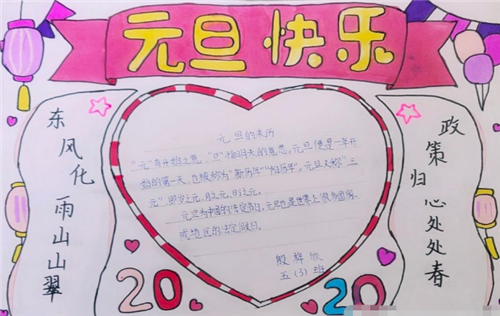 元旦快乐
东风化雨山山翠
元旦的来历
"元"有开始之意，"旦"指明天的意思。元旦便是一年开
始的第一天，也被称为"新历年""阳历年"。元旦又称"三
元"，即岁之元、月之元、时之元。
元旦为中国的法定节日，元旦也是世界上很多国家
或地区的法定假日。
五（3）班
政策归心处处春
2020